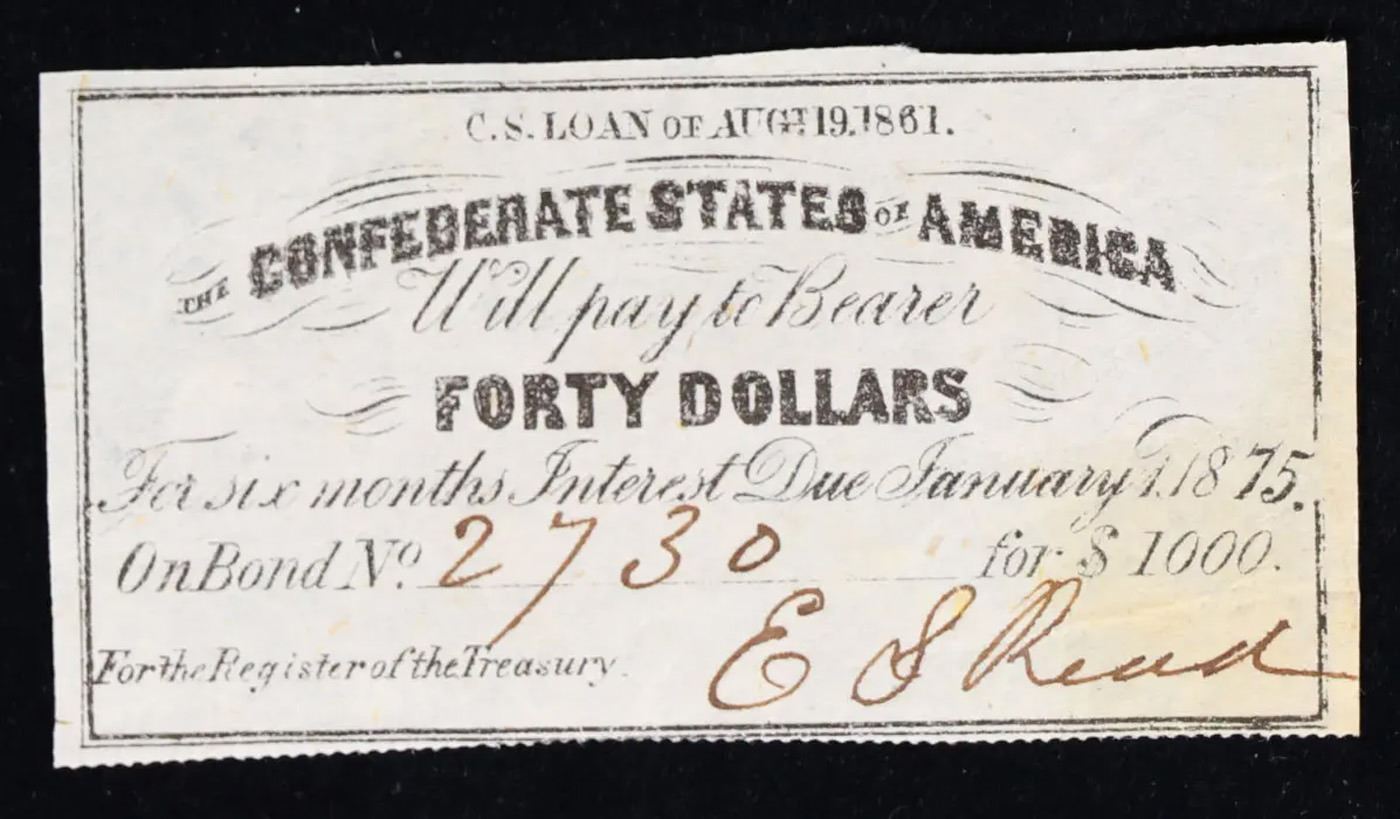 C.S. LOAN OF AUGT. 19. 1861.
THE CONFEDERATE STATES OF AMERICA
Will pay to Bearer
FORTY DOLLARS
For six months Interest Due January 1. 1875.
On Bond No. 2730 for $ 1000.
For the Register of the Treasury. E S Read